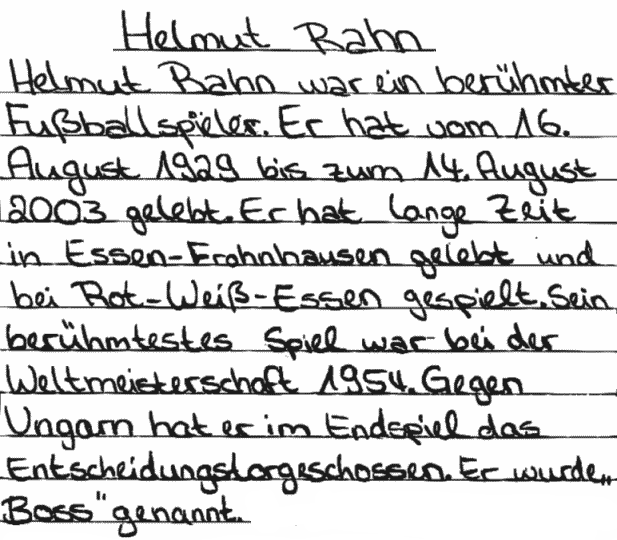 Helmut Rahn
Helmut Rahn war ein berühmter
Fußballspieler. Er hat vom 16.
August 1929 bis zum 14. August
2003 gelebt. Er hat lange Zeit
in Essen-Frohnhausen gelebt und
bei Rot-Weiß-Essen gespielt. Sein
berühmtestes Spiel war bei der
Weltmeisterschaft 1954. Gegen
Ungarn hat er im Endspiel das
Entscheidungstorgeschossen. Er wurde „
Boss“ genannt.